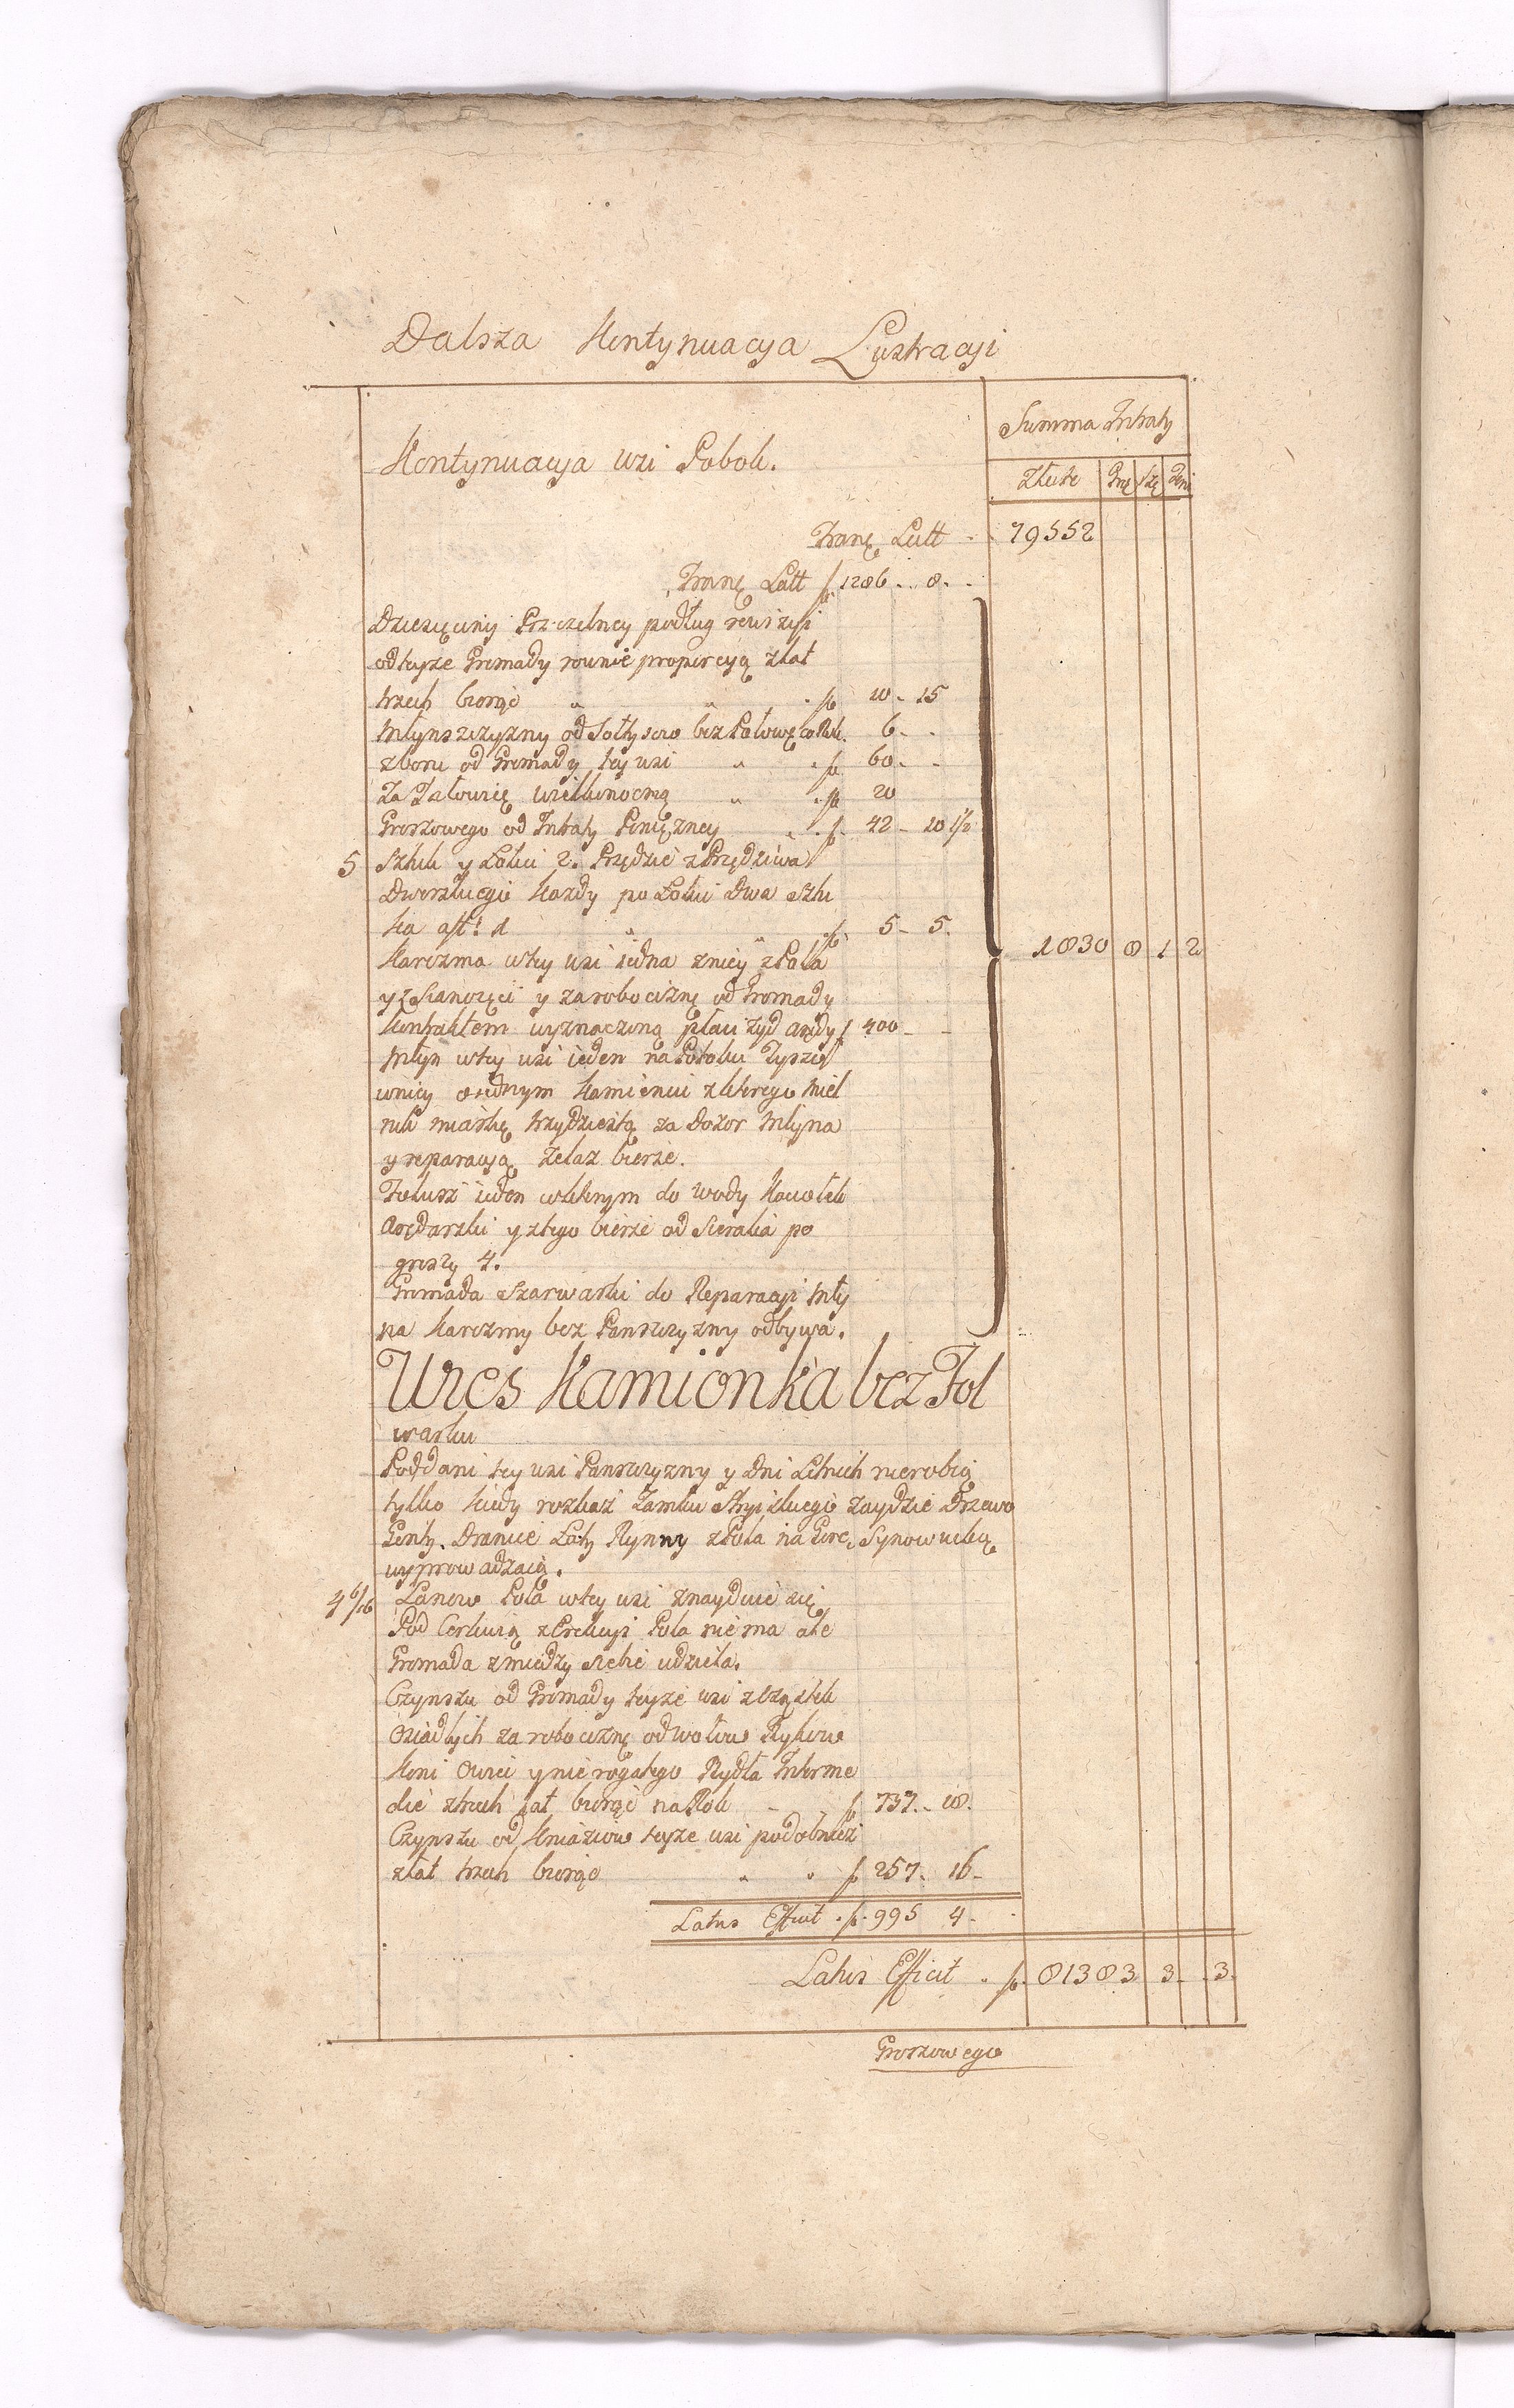 Dalsza Kontynuacya Lustracyi
Summa Intraty
Kontynuacya wsi Pobok.
Złote
Tranę Latt 79552
Tranę Latt f 1286 .. 8.
Dziesięciny Pszczelney podług rewizyi
od teyze Gromady rownie proporcyą z lat
trzech biorąc " " . f 10 - 15
Młynszczyzny od Sołtysow bez Połowę co Rok. 6 -
zboru od Gromady tey wsi " . f 60 -
Za Jałowicę wielkonocną " . f 20
Groszowego od Intraty Pieniężney . f. 42 - 10 1/2
5 Sztuk y Łokci 2. Przędzie z Przędziwa
Dworskiego kazdy po Łokci Dwa Sztu
ka ast: a " " f. 5 - 5.
1830 8 1 2
Karczma w tey wsi iedna zniey z Pola
y z Sianozęci y za robociznę od Gromady
kontraktem wyznaczoną płaci zyd Arędy f 400 -
Młyn w tey wsi ieden na Potoku Tyszo
wnicy o iednym Kamieniu z ktorego Miel
nik miarkę trzydziestą za Dozor Młyna
y reparacyą Zelaz bierze.
Folusz ieden w ktorym do wody Kociołek
Arędarski y z tego bierze od Sieraka po
groszy 4.
Gromada Szarwarki do Reparacyi Mły
na Karczmy bez Panszczyzny odbywa.
Wies Kamionka bez Fol
warku
Poddani tey wsi Panszczyzny y Dni Letnich nierobią
tylko kiedy rozkaz Zamku Stryiskiego zaydzie Drzewo
Gonty, Dranice Łaty Rynny z Pola na Gorę Synowucką
wyprowadzaią.
4 6/16 Łanow Pola w tey wsi znayduie się
Pod Cerkwią z Erekcyi Pola niema ale
Gromada zmiedzy siebie udziela.
Czynszu od Gromady teyze wsi z Cząstek
Osiadłych za robociznę od wołow Bykow
Koni Owiec y nierogatego Bydła Interme
die z trzech lat biorąc na Rok - f 737 .. 18.
Czynszu od Kniaziow teyze wsi podobniez
z lat trzech biorąc " " f 257 . 16 -
Latus Efficit . f. 995 4 -
Latus Efficit . f. 81383 3 - 3.
Groszowego